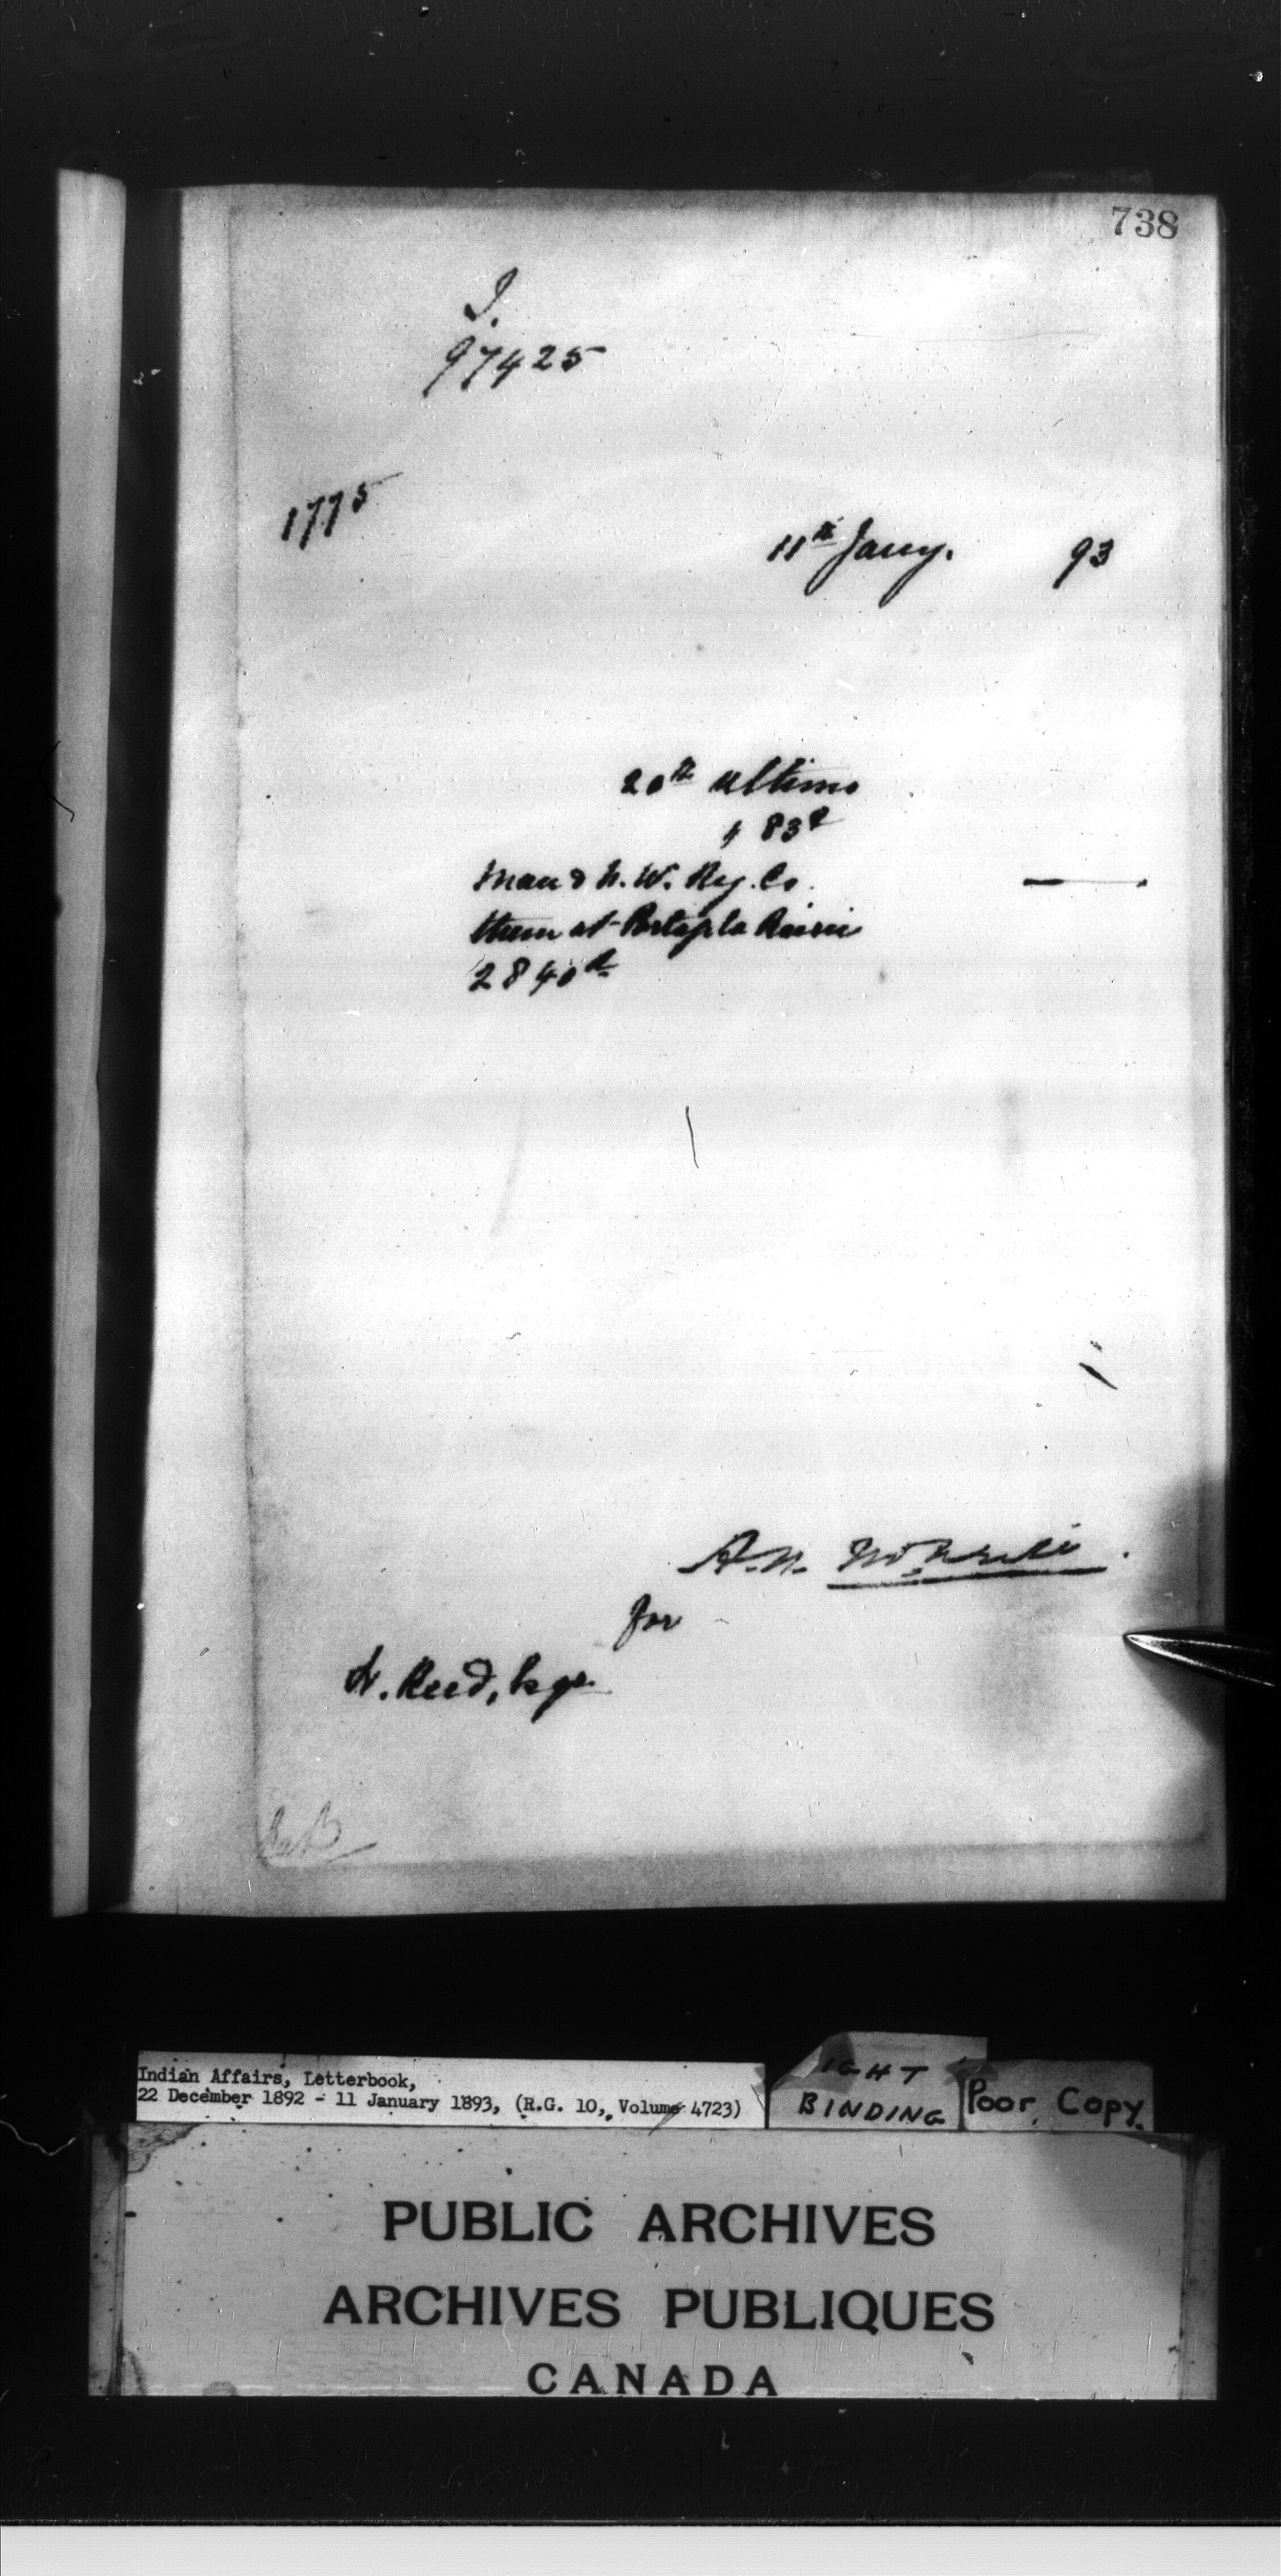 738
I.
97425
1775
11th Jany. 93
20th ultimo
$ 83
Man & N. W. Ry. Co.
them at Portage la Prairie
2840
A.N.
for
H. Reed, Esqr.
Indian Affairs, Letterbook,
22 December 1892 - 11 January 1893, (R.G. 10, Volume 4723)
IGHT
BINDING
Poor Copy.
PUBLIC ARCHIVES
ARCHIVES PUBLIQUES
CANADA